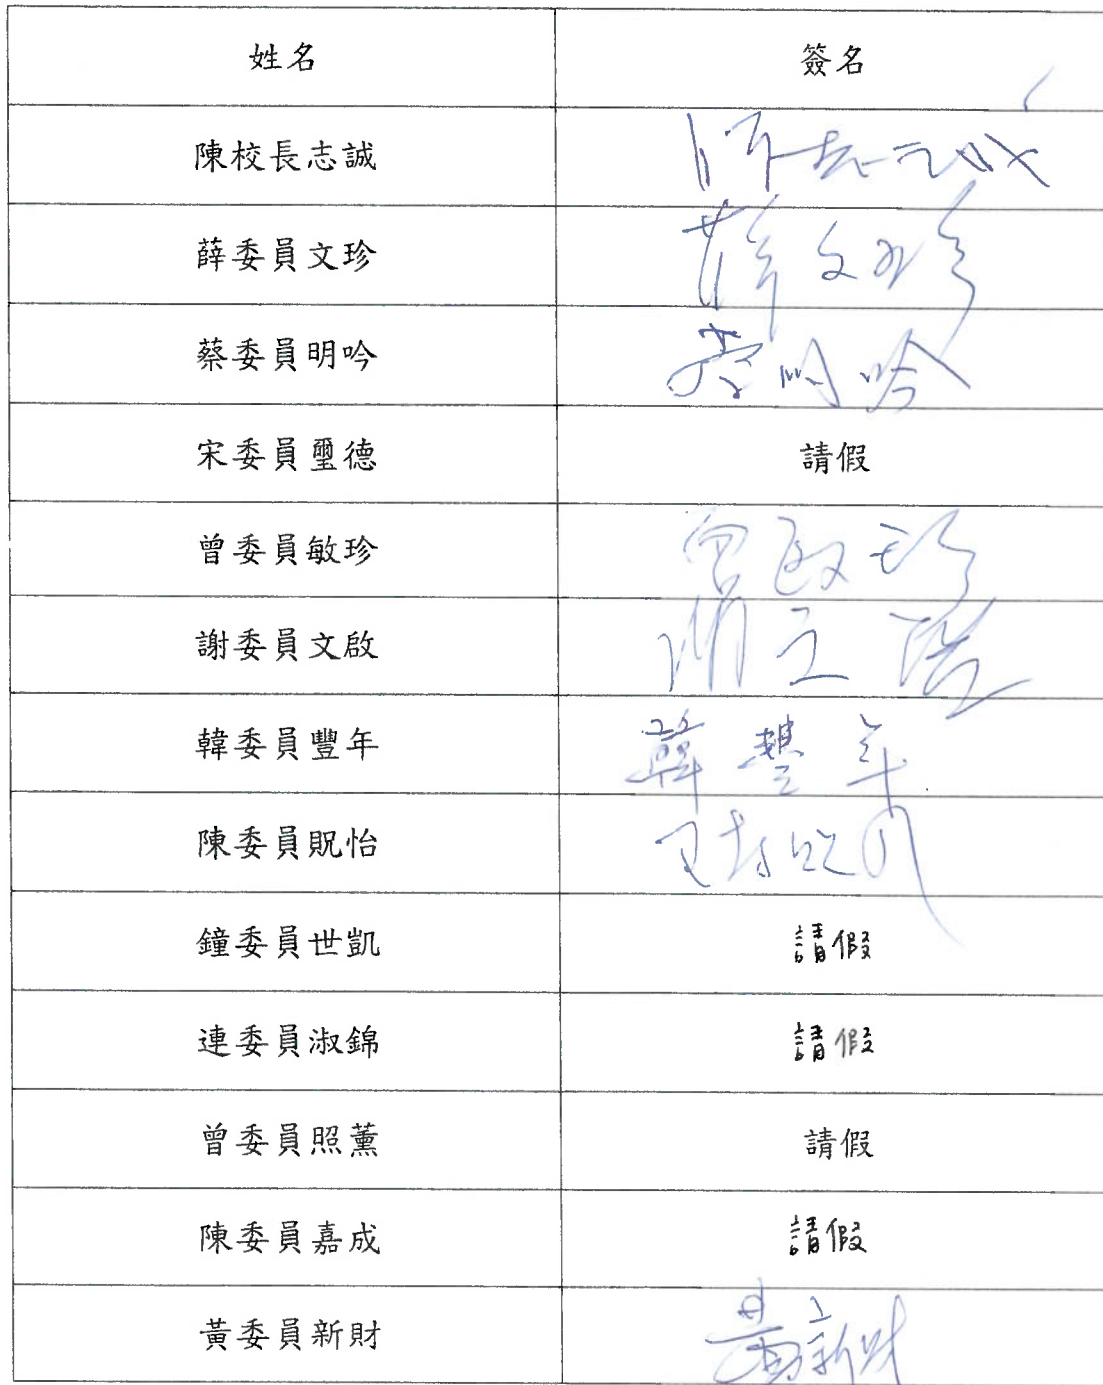 姓名 簽名
陳校長志誠 陳志誠
薛委員文珍 薛文珍
蔡委員明吟 蔡明吟
宋委員璽德 請假
曾委員敏珍 曾敏珍
謝委員文啟 謝文啟
韓委員豐年 韓豐年
陳委員貺怡
鐘委員世凱 請假
連委員淑錦 請假
曾委員照薰 請假
陳委員嘉成 請假
黃委員新財 黃新財